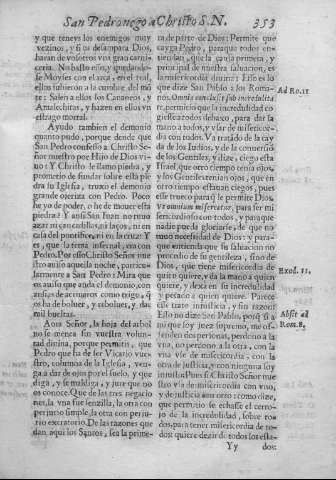 San Pedro nego a Christo S. N. 353
y que teneys los enemigos muy
vezinos, y si os desampara Dios,
haran de vosotros vna gran carni-
ceria. No basto esso, y quedando-
se Moyses con el arca, en el real,
ellos subieron a la cumbre del mō-
te: Salen a ellos los Cananeos, y
Amalechitas, y hazen en ellos vn
estrago mortal.
Ayudo tambien el demonio
quanto pudo, porque desde que
San Pedro confesso a Christo Se-
ñor nuestro por Hijo de Dios vi-
uo: Y Christo le llamo piedra, y
prometio de fundar sobre esta pie
dra su Iglesia, truxo el demonio
grande ojeriza con Pedro. Poco
he yo de poder, o he de mouer esta
piedra? Y assi San Iuan no
ni en la silla
del pontifice, ni en la cruz: Y
es, que la tema infernal, era con
Pedro. Por esso Christo Señor nue
stro auiso aquella noche, particu-
larmente a San Pedro: Mira que
os auiso que anda el demonio, con
ansias de acriuaros como trigo, q̄
os ha de boluer, y reboluer, y dar
mil bueltas.
Aora Señor, la hoja del arbol
no se menea sin vuestra volun-
tad diuina, porque permitis, que
Pedro que ha de ser Vicario vue-
stro, columna de la Iglesia, ven-
ga a dar de ojos por el suelo, y que
diga, y se maldiga, y jure que no
os conoce. Que de las tres negacio
nes, la vna fue senzilla, la otra con
perjurio simple, la otra con perju-
rio execratorio. De las razones que
dan aqui los Santos, sea la prime-
ra de parte de Dios: Permite que
cayga Pedro, para que todos en-
tiendan, que la causa primera, y
principal de nuestra saluacion, es
la misericordia diuina: Esso es lo
que dize San Pablo a los Roma-
nos. Omnia conclusit sub incredulita
te, permitio que la incredulidad co
gielle a todos debaxo, para dar la
mano a todos, y vsar de misericor-
dia con todos. Va tratado de la cay
da de los Iudios, y de la conuersiō
de los Gentiles, y dize, ciega esta
Israel, que otro tiempo tenia ojos,
y los Gentiles tenian ojos, que en
otro tiempo estauan ciegos, pues
esse trueco para q̄ le permite Dios.
Vt omnium misereatur, para ser mi
sericordioso con todos, y para que
nadie pueda gloriarse, de que no
tuuo necessidad de Dios: y para-
que entienda que su saluacion no
procedio de su gentileza, sino de
Dios, que tiene misericordia de
quien quiere, y da la mano a quien
quiere, y dexa en su incredulidad
y pecado a quien quiere. Parece
que es trato injusticia, y sin razon?
Esso no dize San Pablo, porq̄ si a
mi que soy juez supremo, me of-
fenden dos personas, perdono a la
vna, no perdono a la otra, con la
vna vso de misericordia, con la
otra de justicia, y con ninguna soy
injusto: Pues si Christo Señor nue
stro vsa de misericordia con vno,
y de justicia con otro: como dize,
que permitio se echasse el cerro-
jo de la incredulidad, sobre to-
dos, para tener misericordia de to-
dos: quiere dezir de todos los esta-
Ad Ro. 11
Exod. 33.
Absit ad
Rom. 8.
Yy dos: